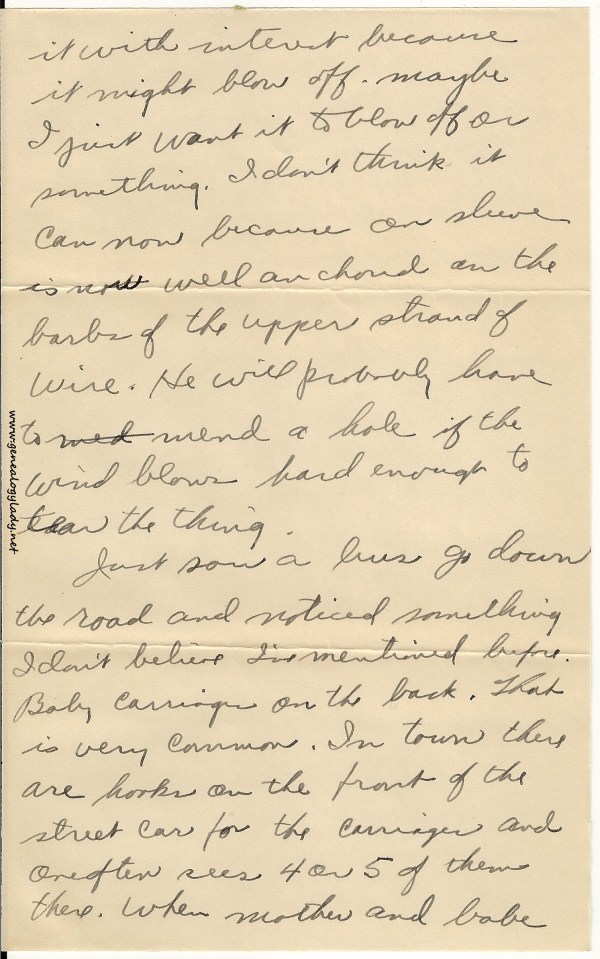 it with interest because
it might blow off. maybe
I just want it to blow off or
something. I don't think it
can now because on sleeve
is now well anchord on the
barbs of the upper strand of
wire. He will probably have
to med mend a hole if the
wind blows hard enough to
tear the thing.
Just saw a bus go down
the road and noticed something
I don't believe I've mentioned before.
Baby carriages on the back. That
is very common. In town there
are hooks on the front of the
street car for the carriages and
one often sees 4 or 5 of them
there. When mother and babe
www.genealogylady.net